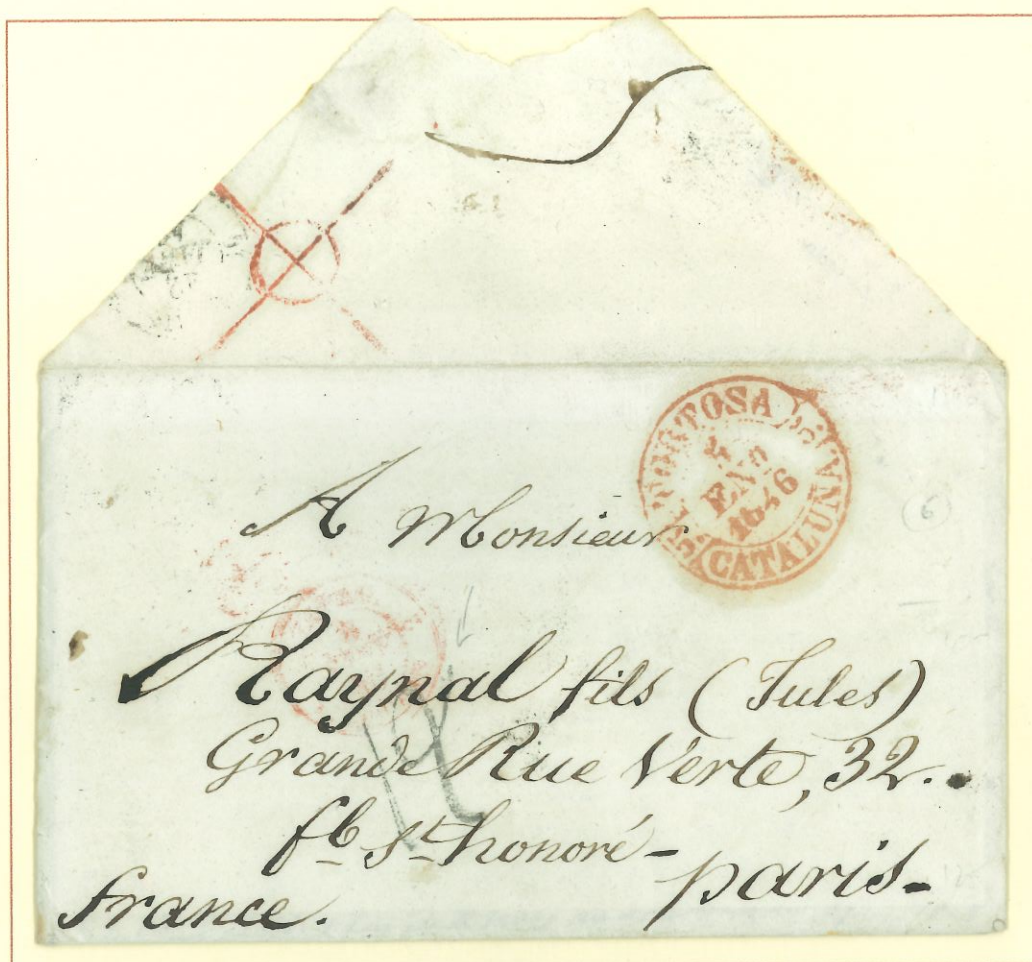 TORTOSA
5
ENO
1846
CATALUÑA
(6)
A Monsieur
Raynal fils (Jules)
Grande Rue Verte, 32.
fb st honoré -
paris -
france.